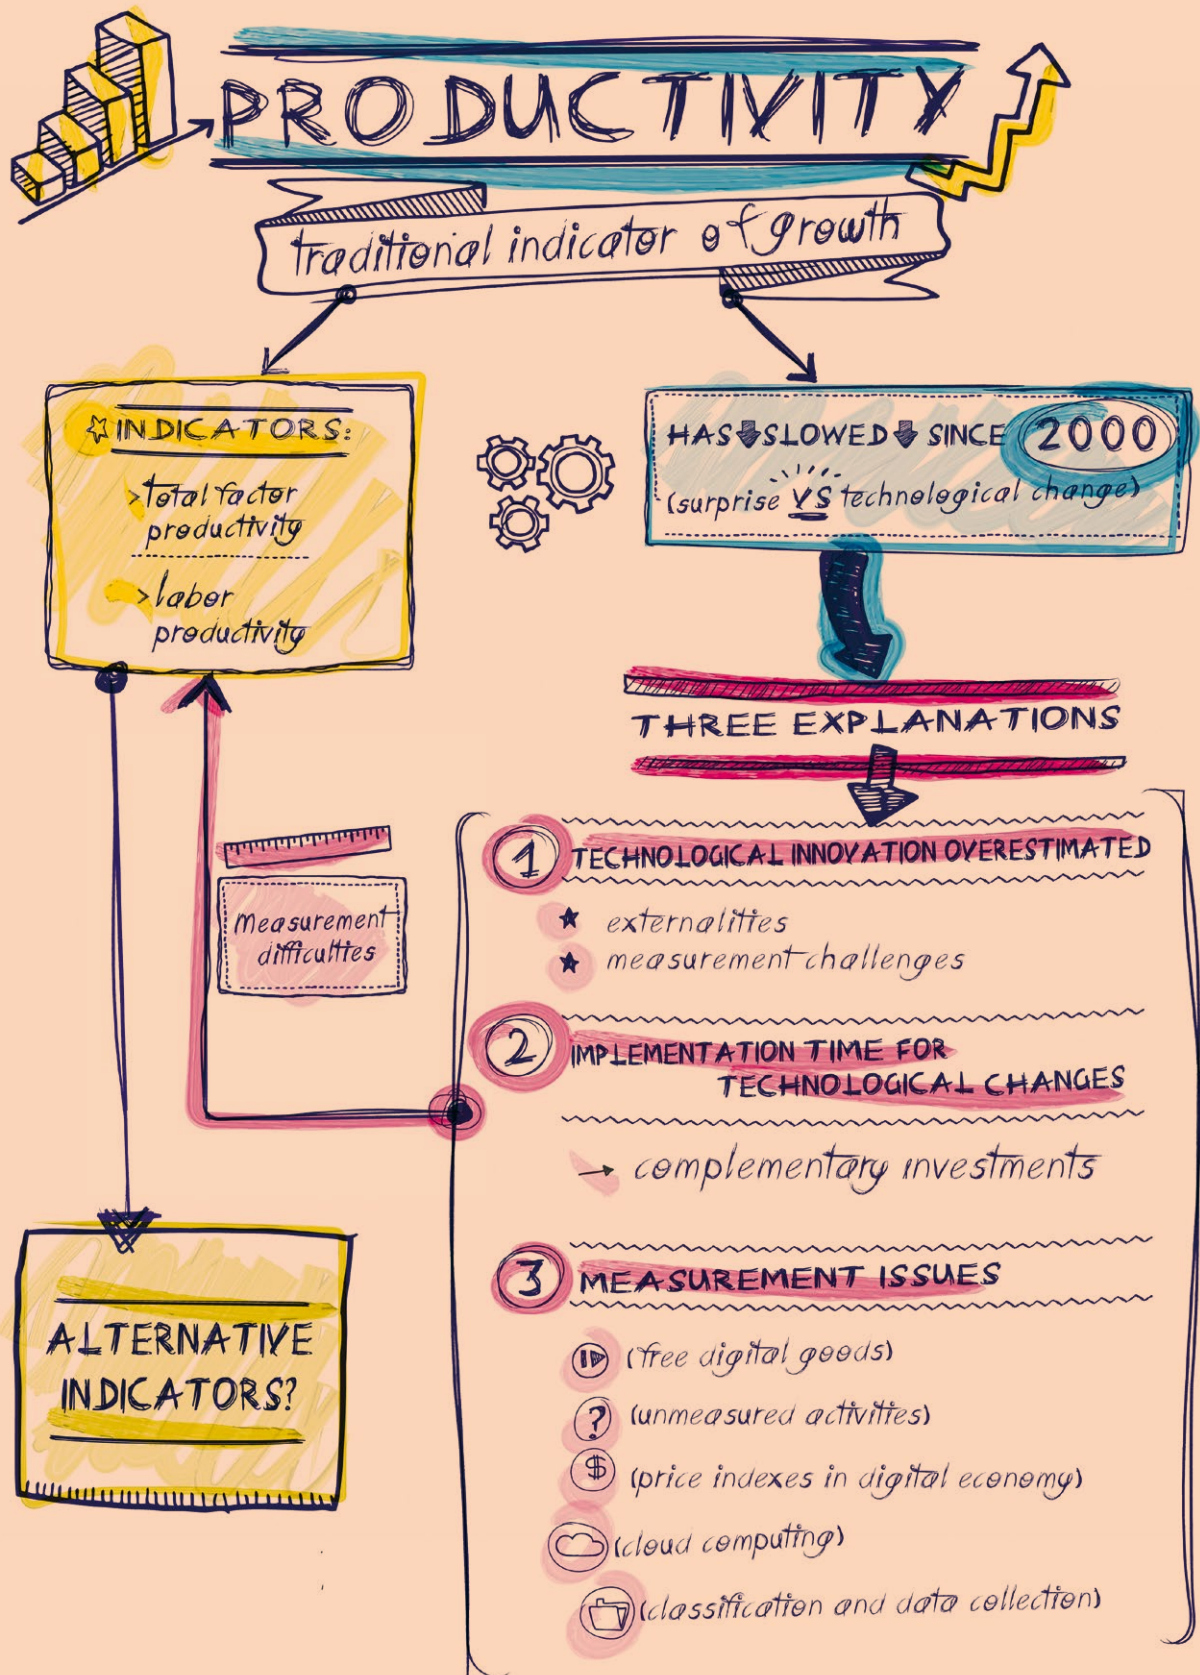 PRODUCTIVITY
traditional indicator of growth
INDICATORS:
>total factor
productivity
>labor
productivity
HAS SLOWED SINCE 2000
(surprise VS technological change)
THREE EXPLANATIONS
1 TECHNOLOGICAL INNOVATION OVERESTIMATED
★ externalities
★ measurement challenges
measurement
difficulties
2 IMPLEMENTATION TIME FOR
TECHNOLOGICAL CHANGES
→ complementary investments
3 MEASUREMENT ISSUES
(free digital goods)
? (unmeasured activities)
$ (price indexes in digital economy)
(cloud computing)
(classification and data collection)
ALTERNATIVE
INDICATORS?